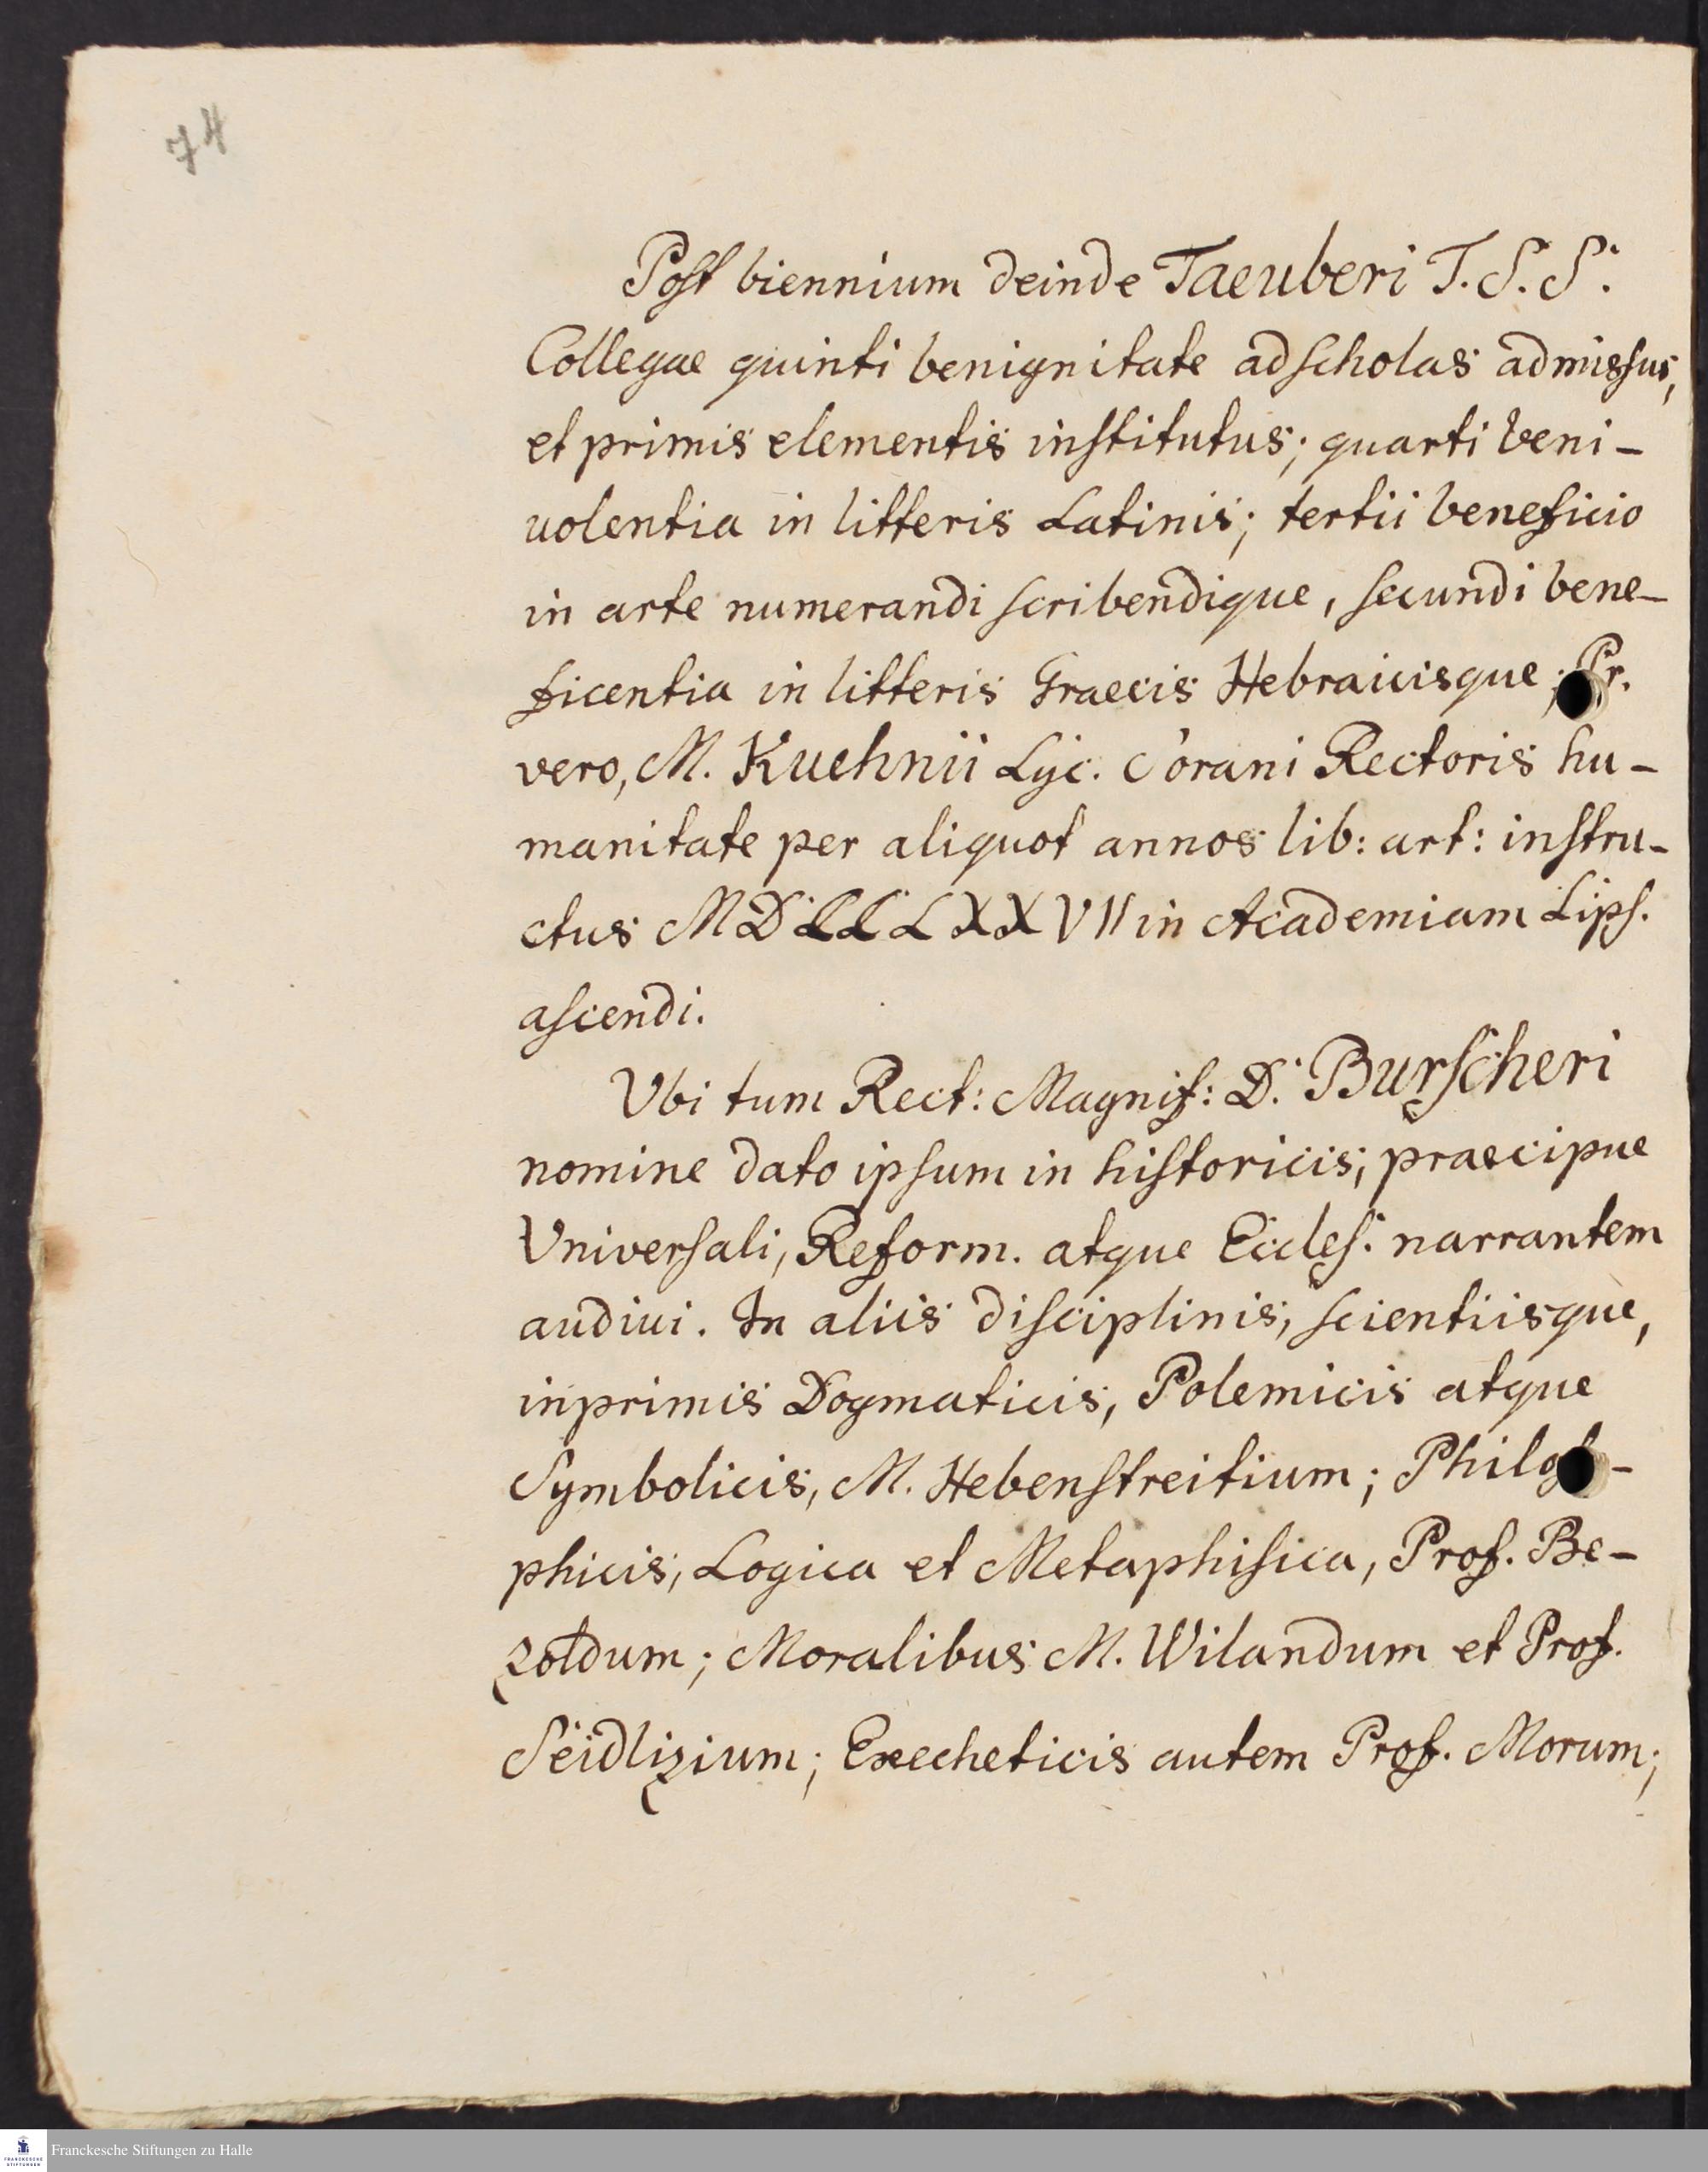 74
Post biennium deinde Taeuberi T. S. S.
Collegae quinti benignitate ad scholas admissus,
et primis elementis institutus; quarti beni-
uolentia in litteris Latinis; tertii beneficio
in arte numerandi scribendique, secundi bene-
ficentia in litteris Graecis Hebraicisque; Pr.
vero, M. Kuehnii Lyc. Sorani Rectoris hu-
manitate per aliquot annos lib: art: instru-
ctus MDCCLXXVII in Academiam Lips.
ascendi.
Vbi tum Rect: Magnif: D. Burscheri
nomine dato ipsum in historicis, praecipue
Vniversali, Reform. atque Eccles. narrantem
audiui. In aliis disciplinis, scientiisque,
inprimis Dogmaticis, Polemicis atque
Symbolicis, M. Hebenstreitium; Philoso-
phicis, Logica et Metaphisica, Prof. Be-
zoldum; Moralibus M. Wilandum et Prof.
Seidlizium; Execheticis autem Prof. Morum;
Franckesche Stiftungen zu Halle
FRANCKESCHE
STIFTUNGEN